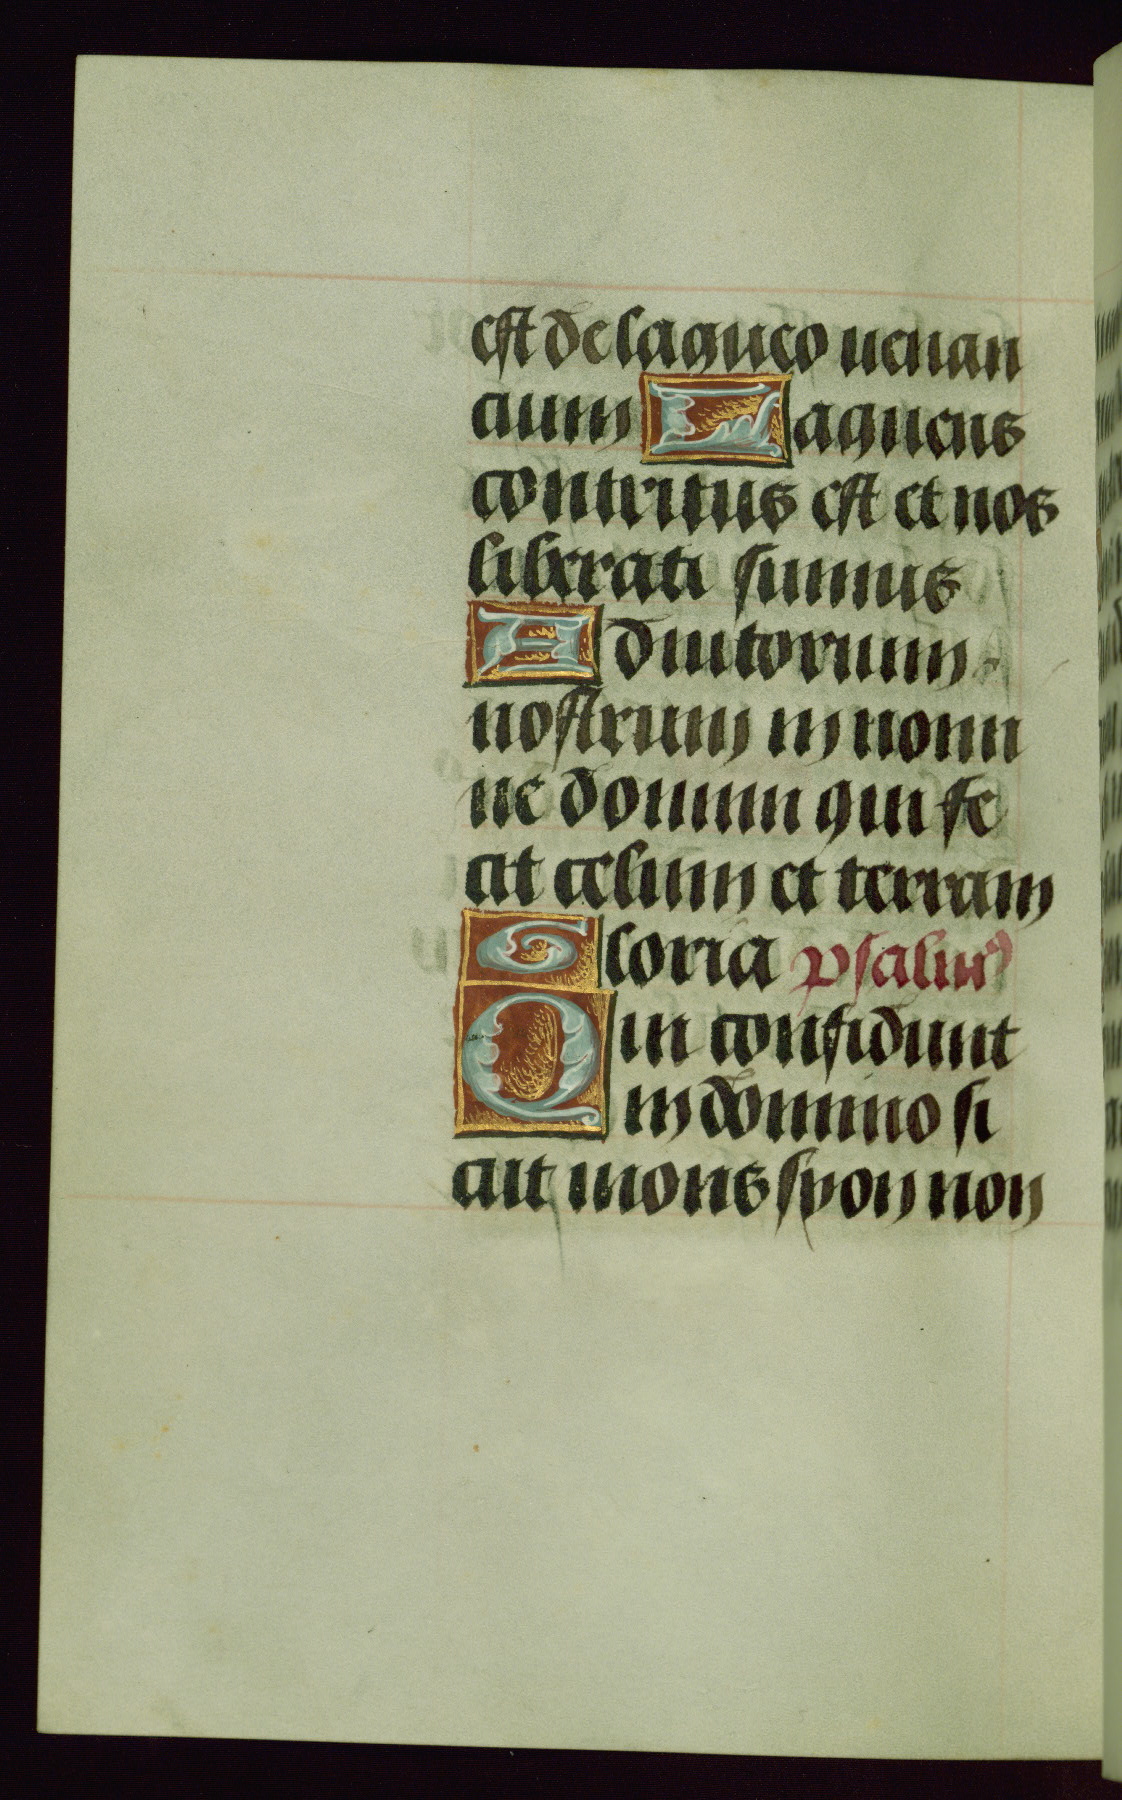 est de laqueo uenan
cium Laqueus
contritus est et nos
liberati sumus
Adiutorium
nostrum in nomi
ne domini qui fe
cit celum et terram
Gloria psalm⁹
Qui confidunt
in domino si
cut mons syon non